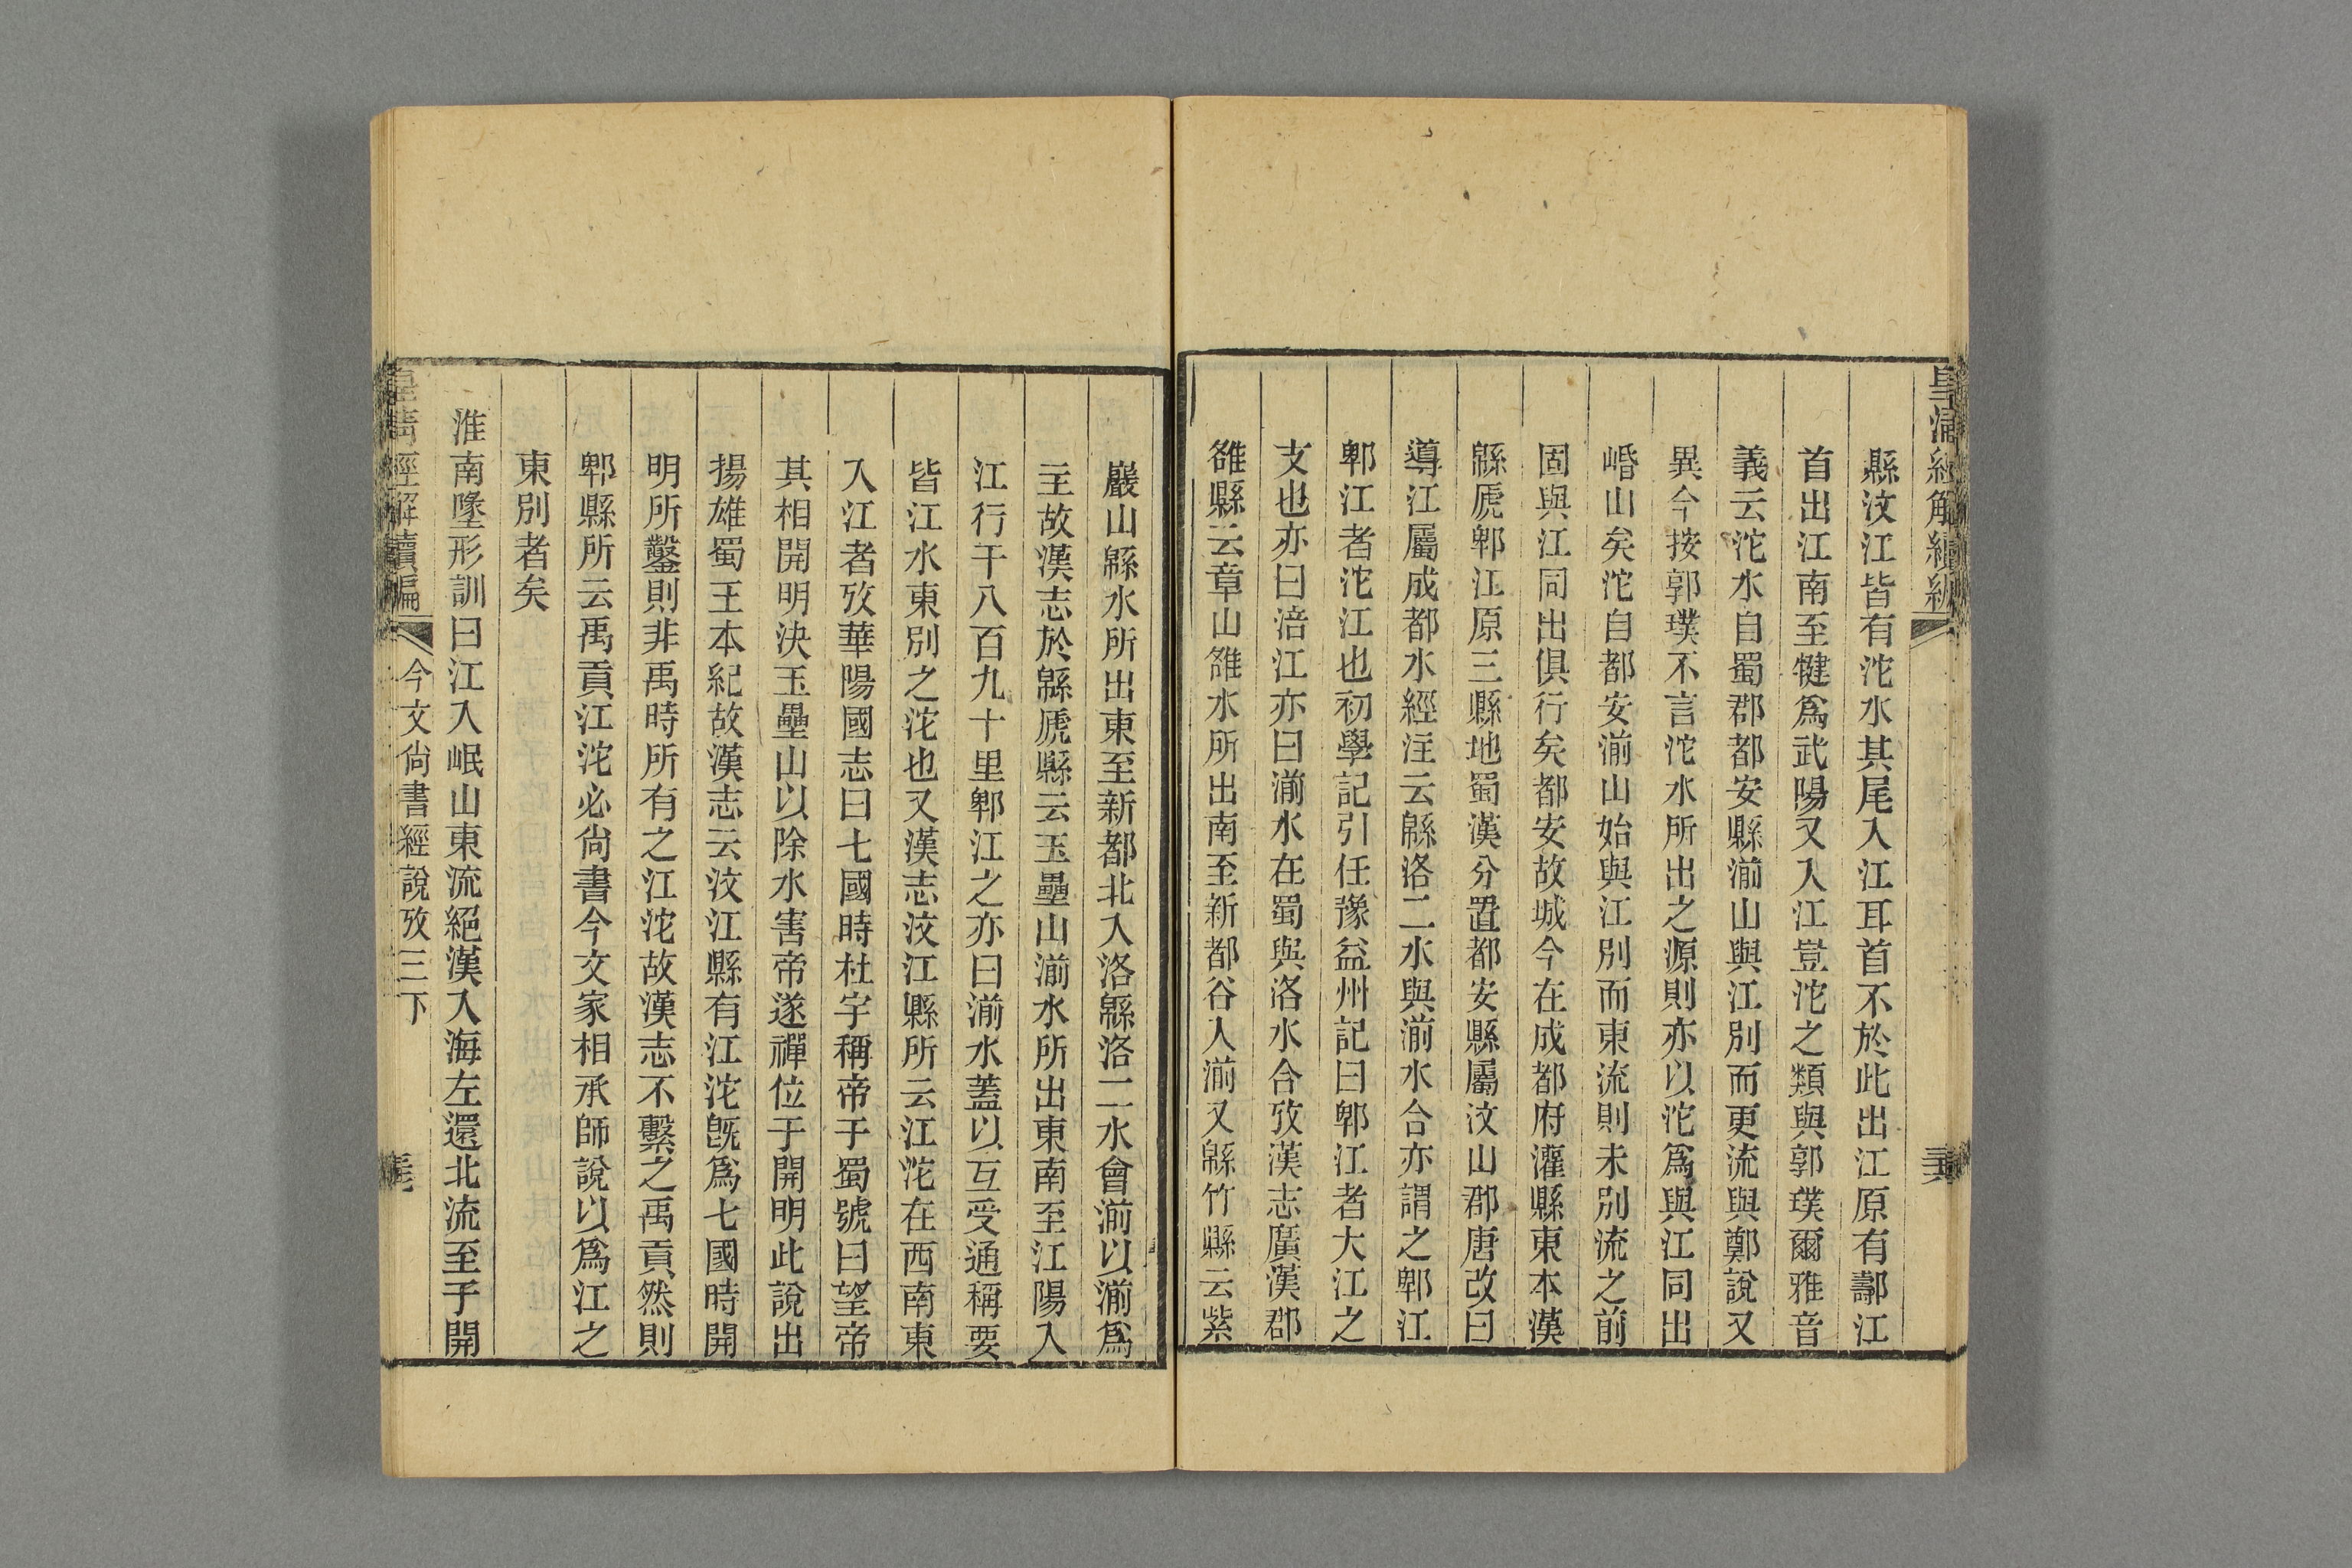 皇清經解續編
縣汶江皆有沱水其尾入江耳首不於此出江原有䣢江
首出江南至犍爲武陽又入江豈沱之類與郭璞爾雅音
義云沱水自蜀郡都安縣湔山與江別而更流與鄭說又
異今按郭璞不言沱水所出之源則亦以沱爲與江同出
㟭山矣沱自都安湔山始與江別而東流則未別流之前
固與江同出俱行矣都安故城今在成都府灌縣東本漢
緜虒郫江原三縣地蜀漢分置都安縣屬汶山郡唐改曰
導江屬成都水經注云緜洛二水與湔水合亦謂之郫江
郫江者沱江也初學記引任豫益州記曰郫江者大江之
支也亦曰涪江亦曰湔水在蜀與洛水合攷漢志廣漢郡
雒縣云章山雒水所出南至新都谷入湔又緜竹縣云紫
巖山緜水所出東至新都北入洛緜洛二水會湔以湔爲
主故漢志於緜虒縣云玉壘山湔水所出東南至江陽入
江行千八百九十里郫江之亦曰湔水蓋以互受通稱要
皆江水東別之沱也又漢志汶江縣所云江沱在西南東
入江者攷華陽國志曰七國時杜宇稱帝于蜀號曰望帝
其相開明決玉壘山以除水害帝遂禪位于開明此說出
揚雄蜀王本紀故漢志云汶江縣有江沱旣爲七國時開
明所鑿則非禹時所有之江沱故漢志不繫之禹貢然則
郫縣所云禹貢江沱必尙書今文家相承師說以爲江之
東別者矣
淮南墬形訓曰江入岷山東流絕漢入海左還北流至于開
皇清經解續編
今文尙書經說攷三下